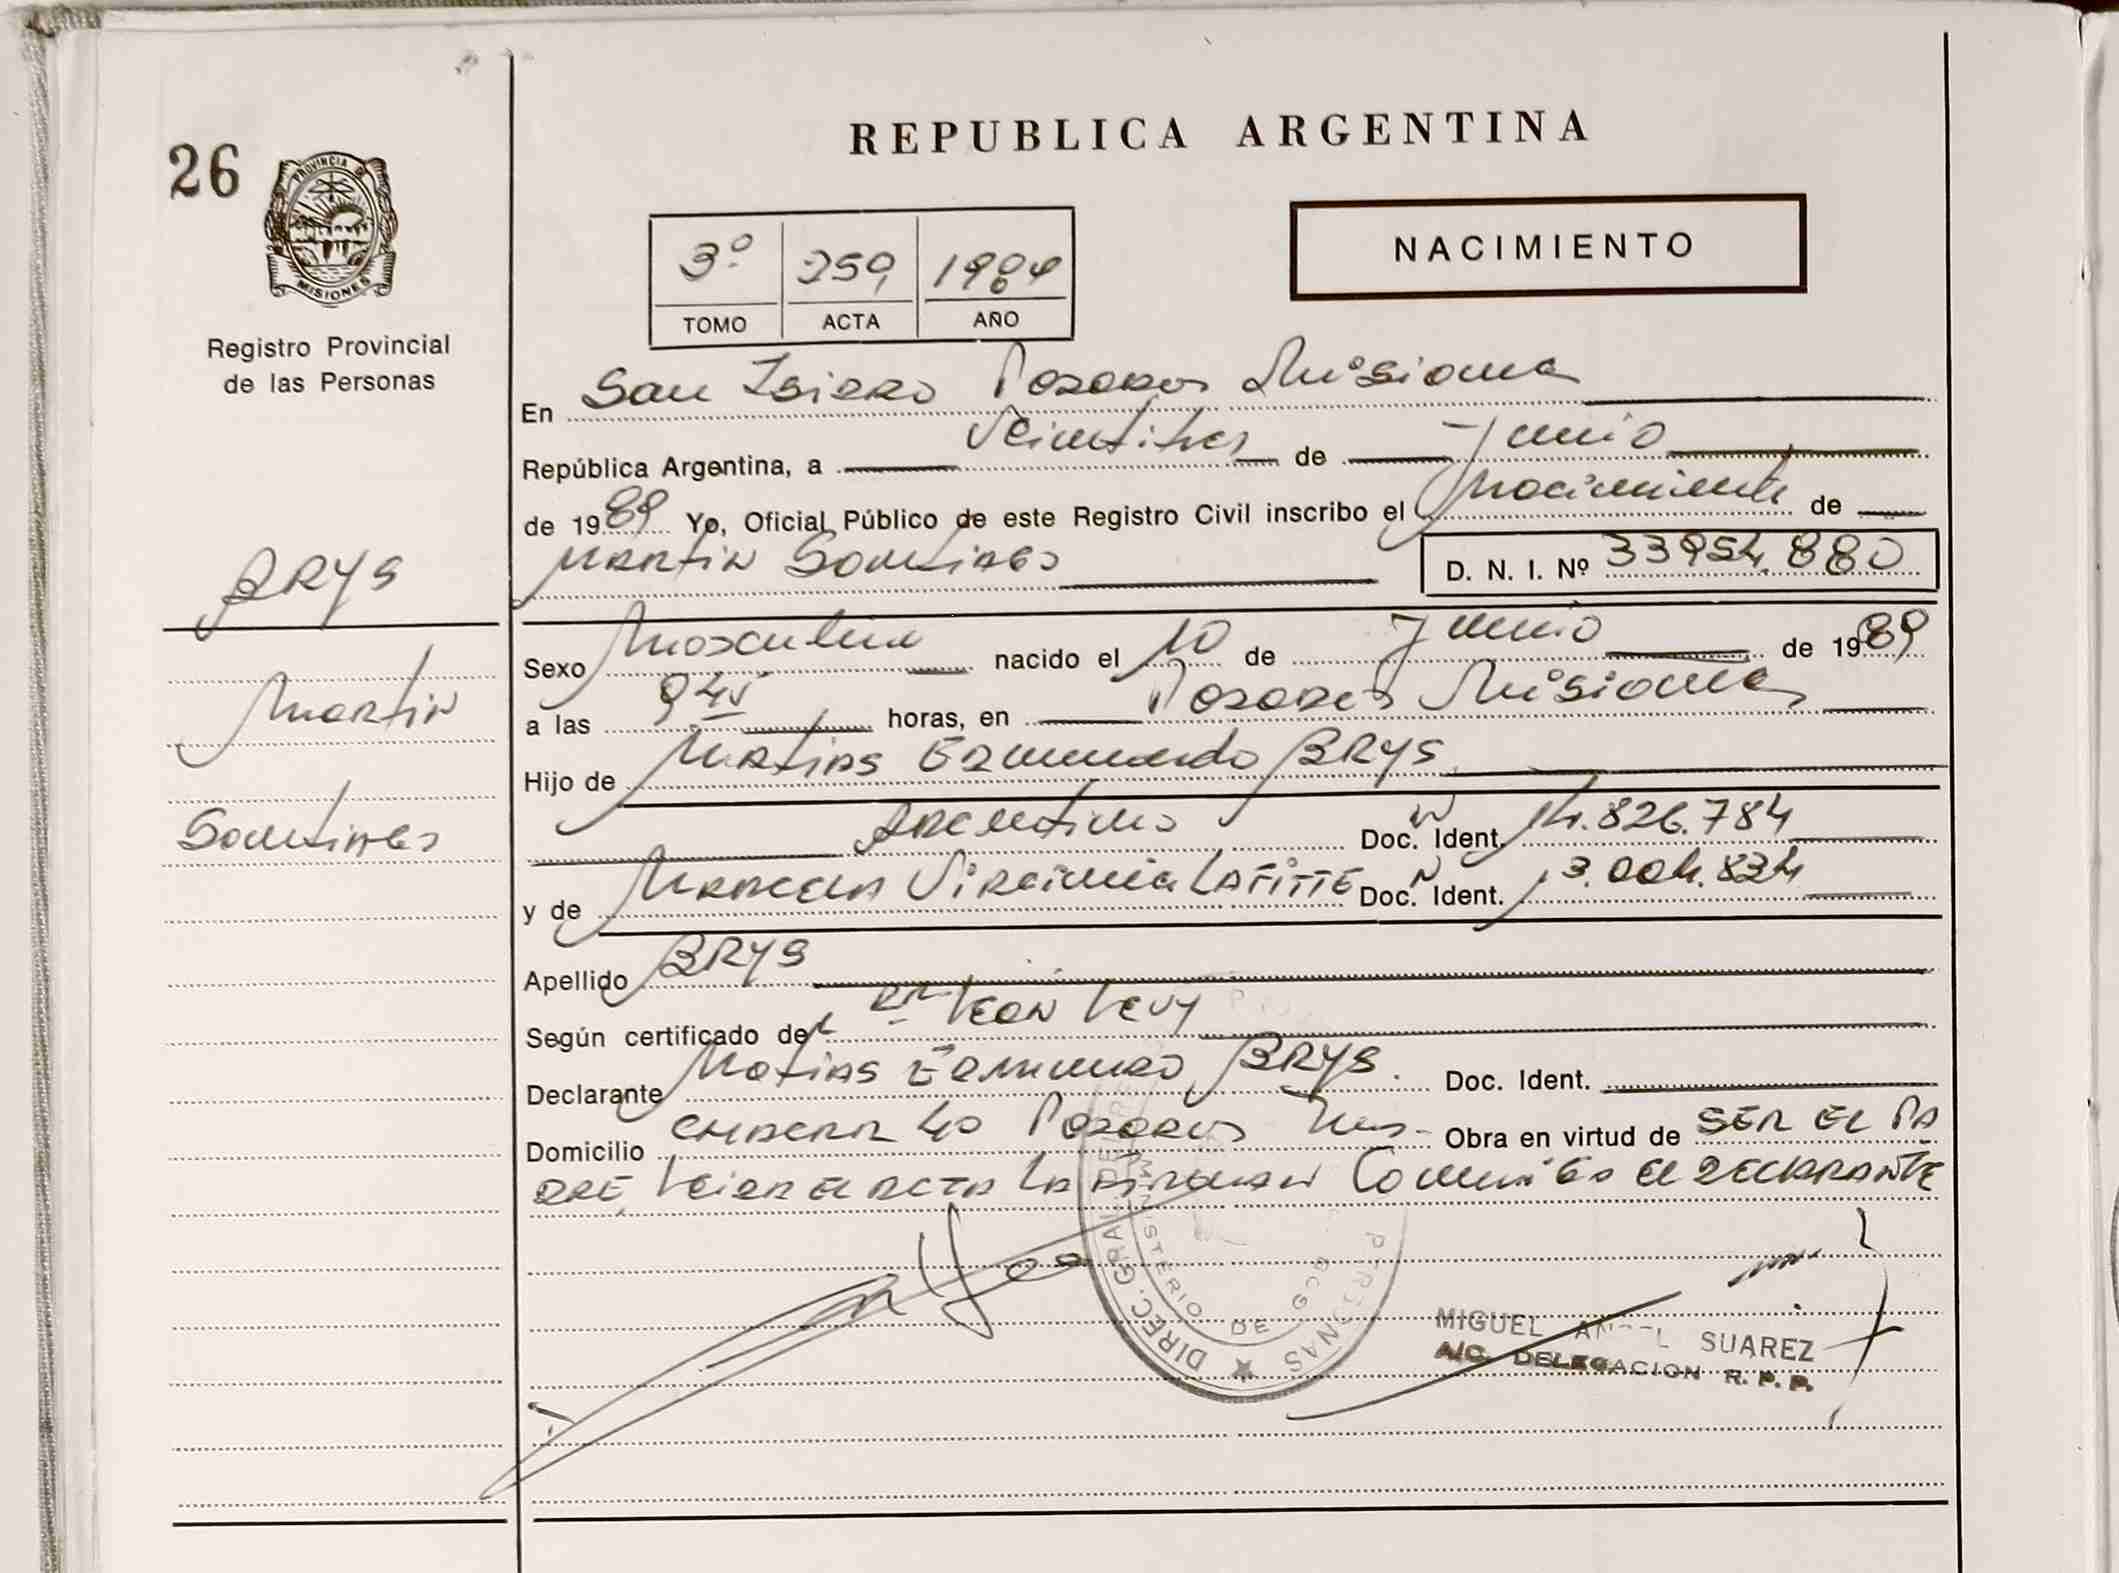 26
PROVINCIA DE
MISIONES
Registro Provincial
de las Personas
BRYS
Martin
Santiago
REPUBLICA ARGENTINA
NACIMIENTO
3º 259 1989
TOMO ACTA AÑO
En San Isidro Posadas Misiones
República Argentina, a Veintitres de Junio
de 1989 Yo, Oficial Público de este Registro Civil inscribo el nacimiento de
Martin Santiago D. N. I. Nº 33954.880
Sexo Masculino nacido el 10 de Junio de 1989
a las 9 45 horas, en Posadas Misiones
Hijo de Matias Edmundo BRYS
Argentino Doc. Ident. 14.826.784
y de Marcela Virginia LAFITTE Doc. Ident. 13.004.834
Apellido BRYS
Según certificado del Dr. Leon Levy
Declarante Matias Edmundo BRYS. Doc. Ident.
Domicilio 40 Posadas Mns- Obra en virtud de SER EL PA
DRE, Leida el acta la firman Conmigo el DECLARANTE
DIREC. GRAL. DE PERSONAS
MINISTERIO DE GOB
MIGUEL ANGEL SUAREZ
A/C. DELEGACION R. P. P.